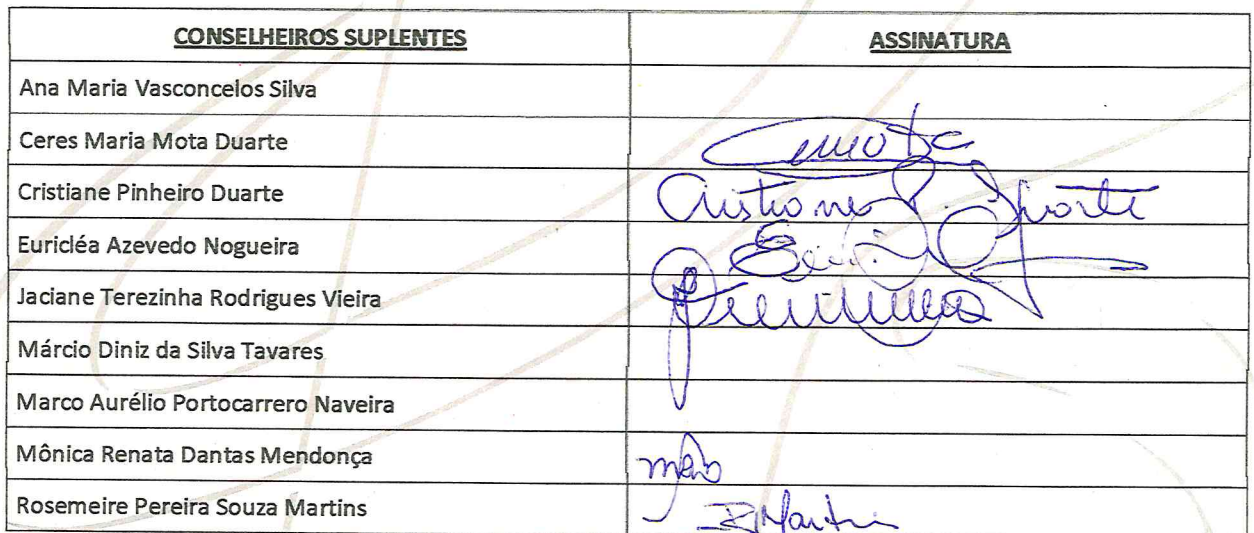 CONSELHEIROS SUPLENTES ASSINATURA
Ana Maria Vasconcelos Silva
Ceres Maria Mota Duarte
Cristiane Pinheiro Duarte Cristiane P. Duarte
Euricléa Azevedo Nogueira
Jaciane Terezinha Rodrigues Vieira
Márcio Diniz da Silva Tavares
Marco Aurélio Portocarrero Naveira
Mônica Renata Dantas Mendonça
Rosemeire Pereira Souza Martins RMartins